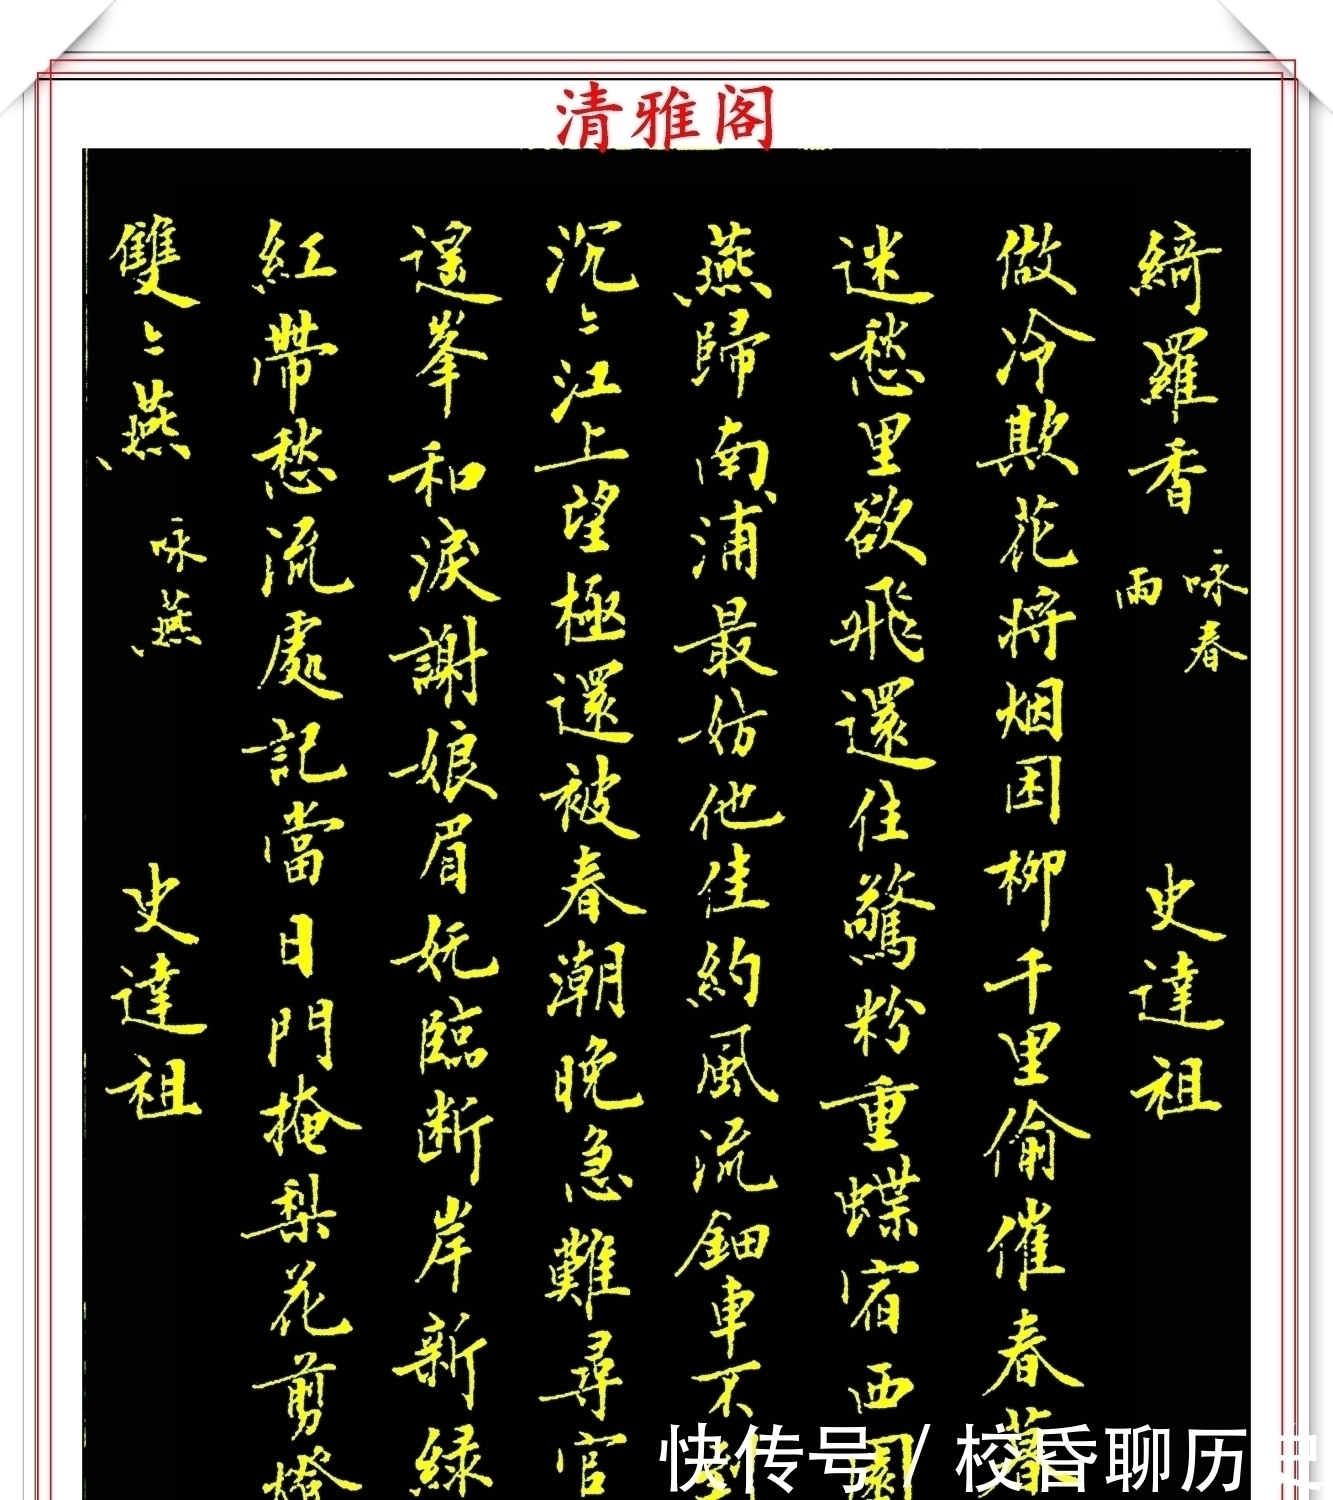 清雅阁
綺羅香 咏春雨 史達祖
做冷欺花将烟困柳千里偷催春暮
迷愁里欲飛還住驚粉重蝶宿西園
燕歸南浦最妨他佳約風流鈿車不到
沉〻江上望極還被春潮晚急難尋官
遥峯和淚謝娘眉妩臨断岸新緑
紅帶愁流處記當日門掩梨花剪燈
雙〻燕 咏燕 史達祖
快传号 / 校昏聊历史